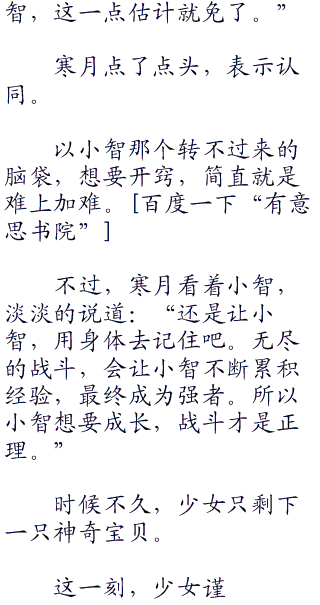 智，这一点估计就免了。”
寒月点了点头，表示认
同。
以小智那个转不过来的
脑袋，想要开窍，简直就是
难上加难。[百度一下“有意
思书院”]
不过，寒月看着小智，
淡淡的说道：“还是让小
智，用身体去记住吧。无尽
的战斗，会让小智不断累积
经验，最终成为强者。所以
小智想要成长，战斗才是正
理。”
时候不久，少女只剩下
一只神奇宝贝。
这一刻，少女谨